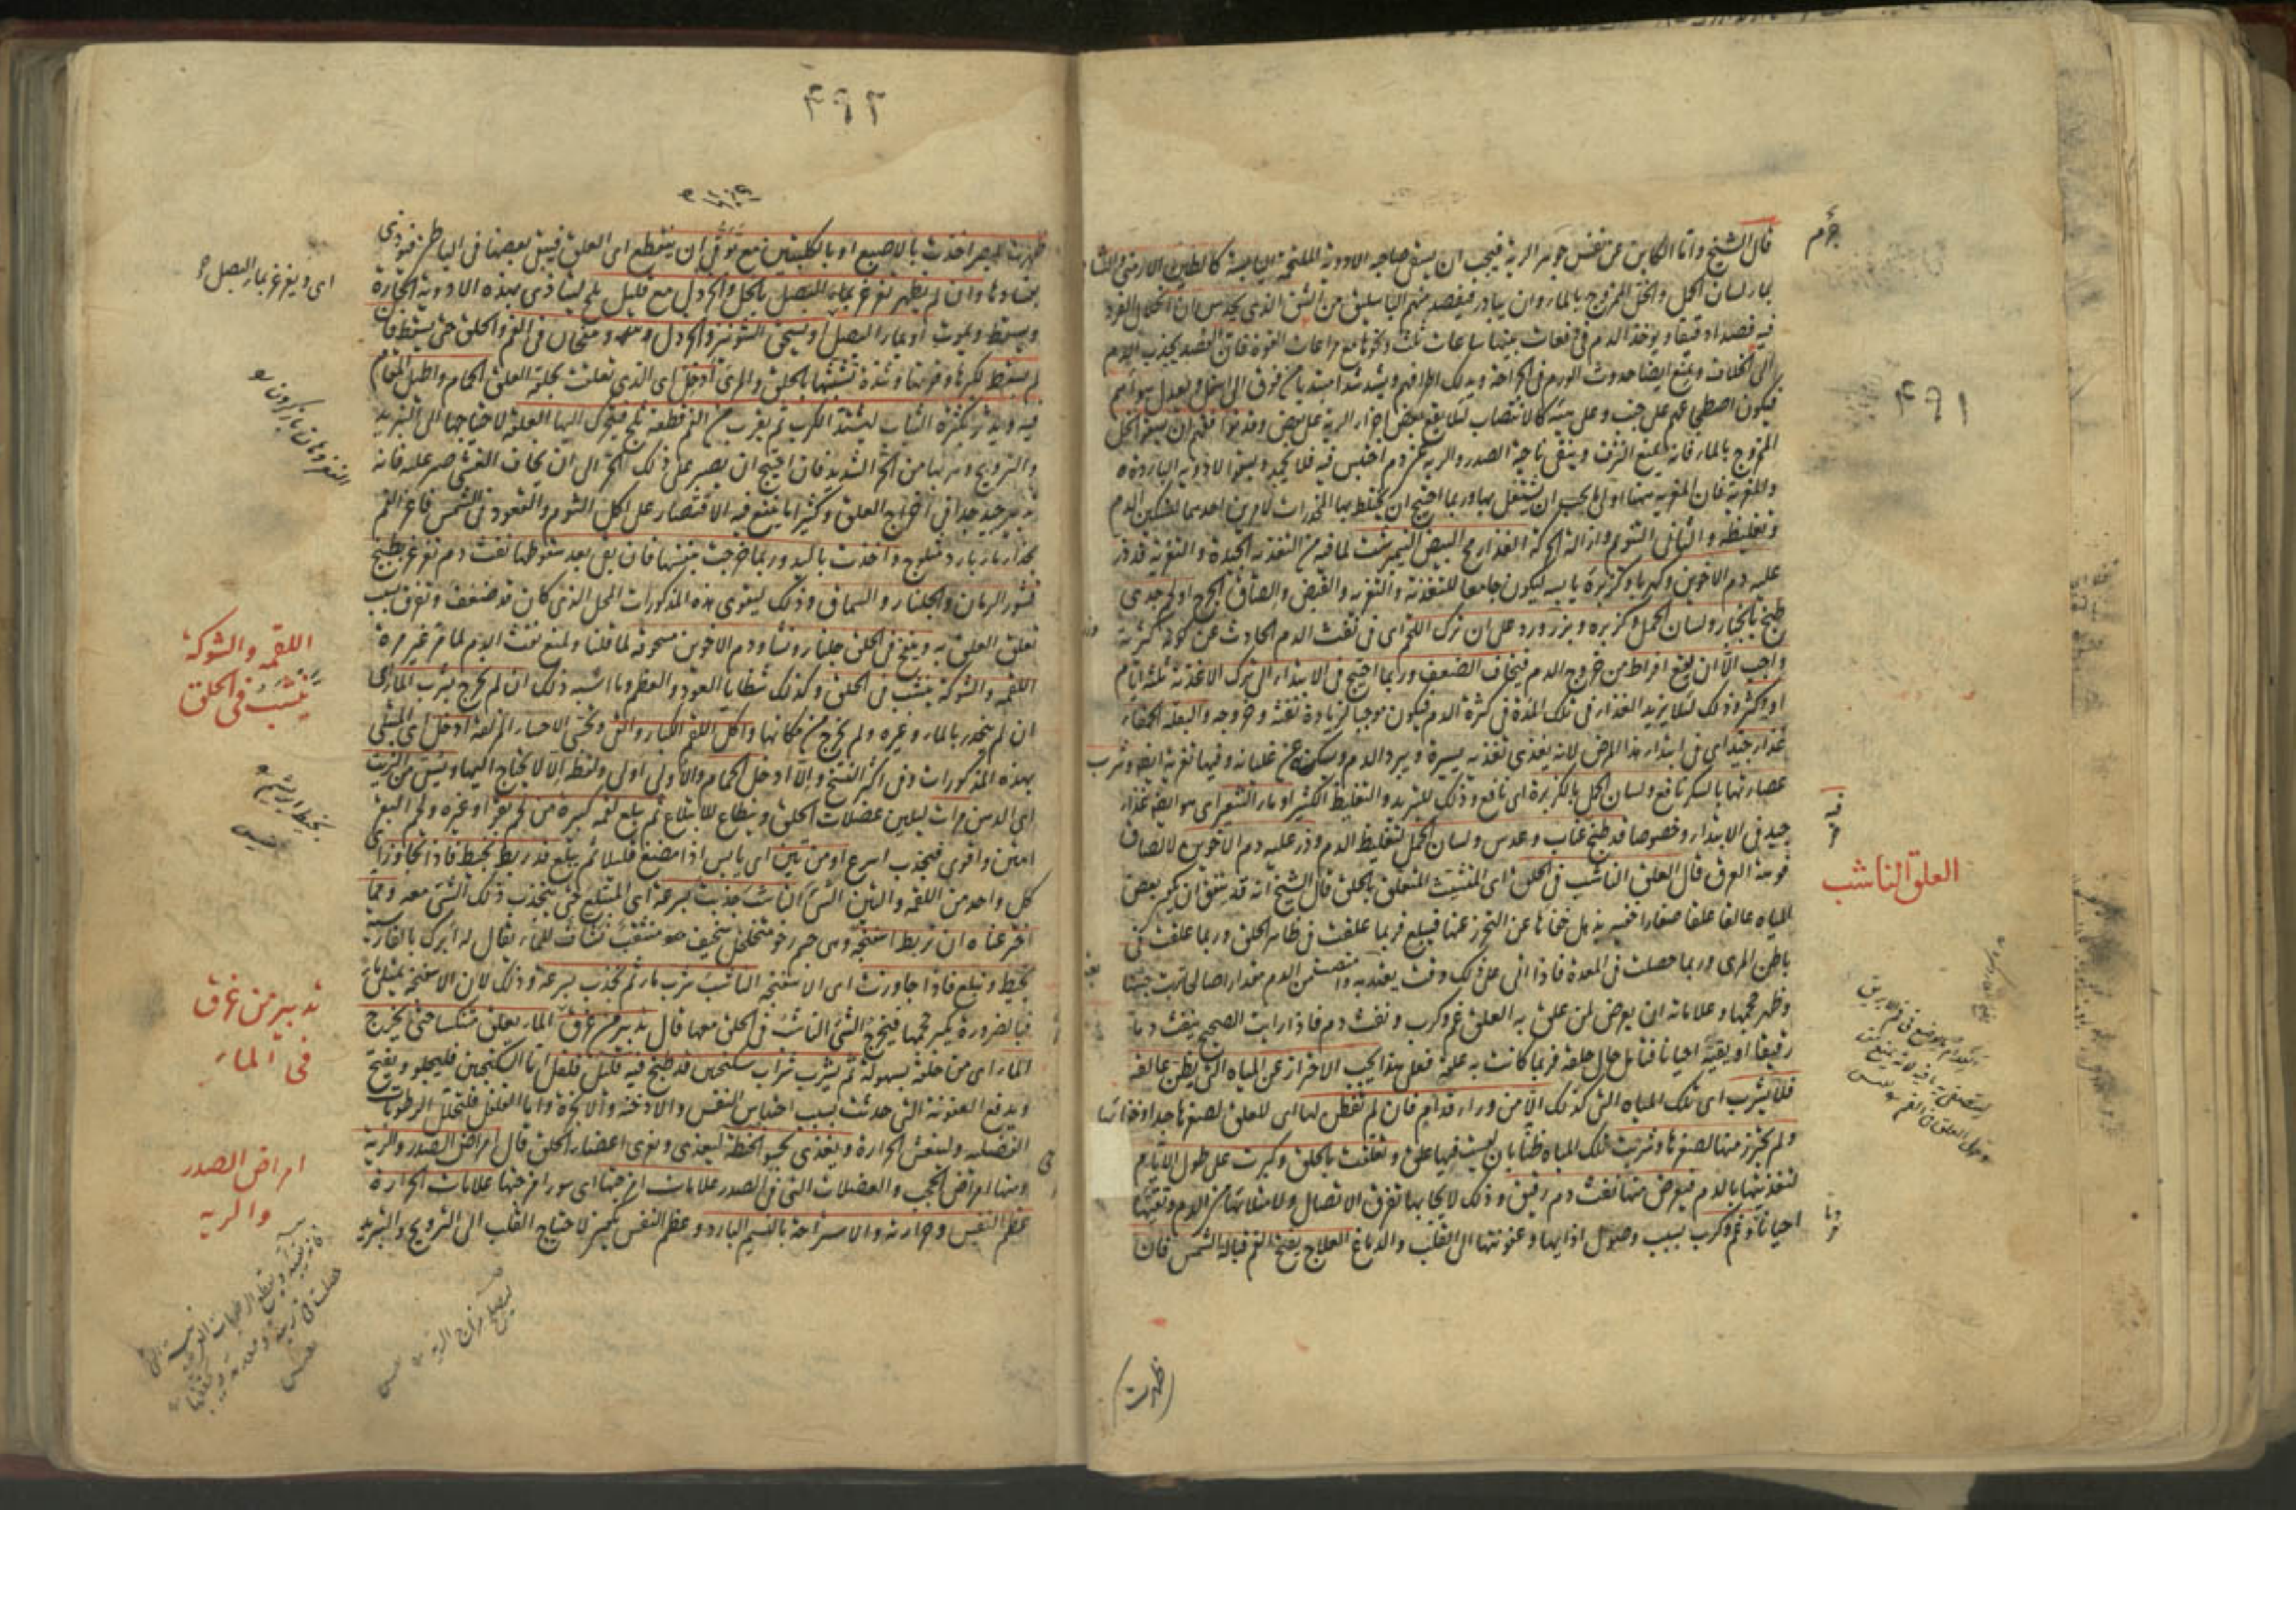 قال الشيخ واما الكاين عن نفس جوهر الرية فيجب ان يسقى صاحبه الادوية الملتحمة اليابسة كالطين الارمنى
بماء لسان الحمل والخل الممزوج بالماء وان يبادر فيفصد منهم الباسليق من الشق الذى يحدس ان انحلال الفرد
فيه فصدا دقيقا ويؤخذ الدم فى دفعات بينها ساعات ثلث ونحوها مع مراعات القوة فان الفصد يجذب الدم
الى الخلاف ويمنع ايضا حدوث الورم فى الجراحة ويدلك اطرافهم ويشد شدا مبتديا من فوق الى اسفل ويعدل هواهم
فيكون اضطجاعهم على جنب وعلى هيئة كالانتصاب لئلا يقع بعض اجزاء الرية على بعض وقد يوافقهم ان يسقوا الخل
الممزوج بالماء فانه يمنع النزف وينقى ناحية الصدر والرية عن دم احتبس فيه فلا يجمد ويسقوا الادوية الباردة
والمغرية فان المغرية ههنا اولى ما يجب ان يشتغل بها وربما احتيج ان يخلط بها المخدرات لامرين احدهما لتسكين الدم
وتغليظه والثانى التنويم وازالة الحركة الغذاء مح البيض النيمبرشت لما فيه من التغذية الجيدة والتغرية قد ذر
عليه دم الاخوين وكهربا وكزبرة يابسة ليكون جامعا للتغذية والتغرية والقبض والصاق الجرح او لحم جدى
طبخ بالخيار ولسان الحمل وكزبرة وبزر ورد على ان ترك اللحم اى فى نفث الدم الحادث عن كونه كثرته
واجب الا ان يقع افراط من خروج الدم فيخاف الضعف وربما احتيج فى الابتداء الى ترك الاغذية ثلثة ايام
او اكثر وذلك لئلا يزيد الغذاء فى تلك المدة فى كثرة الدم فيكون موجبا لزيادة نفثه وخروجه والبقلة الحمقاء
غذاء جيد اى فى ابتداء هذا المرض لانه يغذى تغذية يسيرة ويبرد الدم ويسكنه عن غليانه وفيها تغرية ايضا وشرب
عصارتها بالسكر نافع ولسان الحمل بالكزبرة اى نافع وذلك للتبريد والتغليظ الكثير او ماء الشعير اى هو ايضا غذاء
جيد فى الابتداء وخصوصا قد طبخ عناب وعدس ولسان الحمل لتغليظ الدم وذر عليه دم الاخوين لالصاق
فوهة العرق قال العلق الناشب فى الحلق اى المتشبث المتعلق بالحلق قال الشيخ انه قد يتفق ان يكون بعض
المياه عالقا علقا صغارا خفية يذهل خفاءها عن التحرز عنها فيبلع فربما علقت فى ظاهر الحلق وربما علقت فى
باطن المرى وربما حصلت فى المعدة فاذا اتى على ذلك وقت يعتد به وامتصت من الدم مقدارا صالحا ربت جثتها
وظهر حجمها وعلاماته ان يعرض لمن علق به العلق غم وكرب ونفث دم فاذا رايت الصحيح ينفث دما
رقيقا او يقيئه احيانا فتامل حال حلقه فربما كانت به علقة فعلى هذا يجب الاحتراز عن المياه التى يظن عالقة
فلا يشرب اى تلك المياه التى كذلك الا من وراء قدام فان لم يتفطن لها اى للعلق لصغرها جدا وخفائها
ولم يحترز منها لصغرها وشربت تلك المياه ظنا بان ليست فيها علق وتعلقت بالحلق وكبرت على طول الايام
لتغذيتها بالدم فيعرض منها نفث دم رقيق وذلك لايجابها تفرق الاتصال ولامتلائها من الدم وتقيئها
احيانا وغم وكرب بسبب وصول اذايها وعفونتها الى القلب والدماغ العلاج يفتح الفم قبالة الشمس فان
العلق الناشب
٤٩١
(ظهرت)
ظهرت للبصر اخذت بالاصبع او بالكلبتين مع توقى ان ينقطع اى العلق فيبقى بعضها فى الباطن فيؤذى
وان لم يظهر تغرغر بماء البصل بالخل والخردل مع قليل ملح ليتاذى بهذه الادوية الحارة
ويسقط ويموت او بماء البصل او يسحق الشونيز والخردل وينفخان فى الفم والحلق حتى يسقط فان
لم يسقط لكبرها وقوتها وشدة تشبثها بالحلق والمرى ادخل اى الذى تعلقت بحلقه العلق الحمام واطيل المقام
فيه ويدثر بكثرة الثياب ليشتد الكرب ثم يقرب من الفم قطعة ثلج فيتحرك اليها العلقة لاحتياجها الى التبريد
والترويح وهربها من الحر الشديد فان احتيج ان يصبر على ذلك الحر الى ان يخاف الغشى صبر عليه فانه
تدبير جيد جدا فى اخراج العلق وكثيرا ما ينفع فيه الاقتصار على اكل الثوم والقعود فى الشمس فاغر الفم
بحذاء ماء بارد مثلوج واخذت باليد وربما خرجت بنفسها فان بقى بعد سقوطها نفث دم تغرغر بطبيخ
قشور الرمان والجلنار والسماق وذلك ليقوى هذه المذكورات المحل الذى كان قد ضعف وتفرق بسبب
تعلق العلق به وينفخ فى الحلق جلنار ونشا ودم الاخوين مسحوقة لما قلنا ولمنع نفث الدم لما مر غير مرة
اللقمة والشوكة ينشب فى الحلق وكذلك شظايا العود والعظم وما اشبه ذلك ان لم يخرج بشرب الماء اى
ان لم ينحدر بالماء وغيره ولم يخرج من مكانها واكل اللقم الكبار والتى وتحسى الاحساء المزلقة ادخل اى المبتلى
بهذه المذكورات وفى اكثر النسخ والا ادخل الحمام والاولى اولى ولفظ الا لا يحتاج اليها ويسقى من الزيت
اى الدهن مرات ليلين عضلات الحلق ويطاع للابتلاع ثم يبلع لقمة كبيرة من لحم بقر او غيره ولحم البقر
امتن واقوى فيجذب اسرع او من تين اى يابس اذا مضغ قليلا ثم يبلع قد ربط بخيط فاذا تجاوز اى
كل واحد من اللقمة والتين الشئ الناشب جذبت بسرعة اى المبتلع حتى ينجذب ذلك الشئ معه ومما
اخترعناه ان تربط اسفنجة وهى جسم رخو متخلخل سخيف متثقب نشاف للماء يقال له ابرك بالفارسية
بخيط وتبلع فاذا جاوزت اى الاسفنجة الناشب شرب ماء ثم تجذب بسرعة وذلك لان الاسفنجة يمتلى ماء
فبالضرورة يكبر حجمها فيخرج الشئ الناشب فى الحلق معها قال تدبير من غرق فى الماء يعلق منتكسا حتى يخرج
الماء اى من حلقه بسهولة ثم يشرب شراب سكنجبين قد طبخ فيه فلفل قليل اما السكنجبين فليجلو ويفتح
ويدفع العفونة التى حدثت بسبب احتباس النفس والادخنة والابخرة واما الفلفل فلتحلل الرطوبات
الفضلية ولينعش الحرارة ويغذى بحسو الحنطة ليغذى ويقوى اعضاء الحلق قال امراض الصدر والرية
ومنها امراض الحجب والعضلات التى فى الصدر علامات امزجتها اى سوء امزجتها علامات الحرارة
عظم النفس وحرارته والاستراحة بالنسيم البارد وعظم النفس يكبر لاحتياج القلب الى الترويح والتبريد
اى ويغرغر بماء البصل
اللقمة والشوكة
ينشب فى الحلق
تدبير من غرق
فى الماء
امراض الصدر
والرية